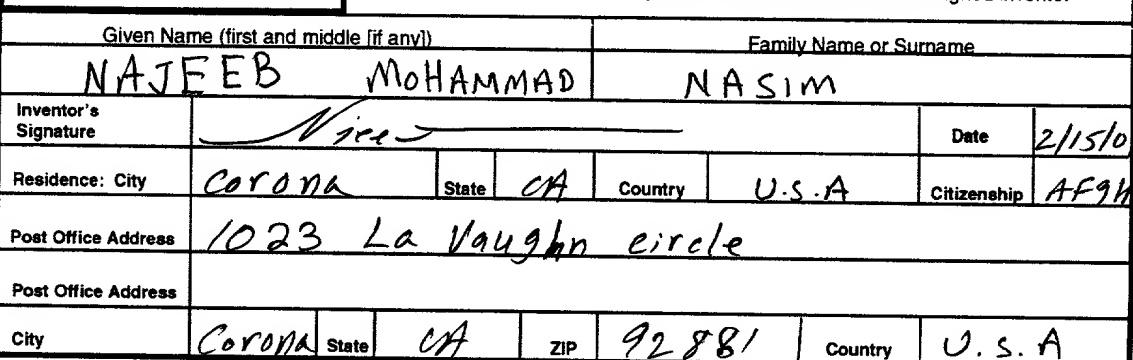 Given Name (first and middle [if any]) Family Name or Surname
NAJEEB MOHAMMAD NASIM
Inventor's
Signature Date 2/15/0
Residence: City Corona State CA Country U.S.A Citizenship AFgh
Post Office Address 1023 La Vaughn circle
Post Office Address
City Corona State CA ZIP 92881 Country U.S.A